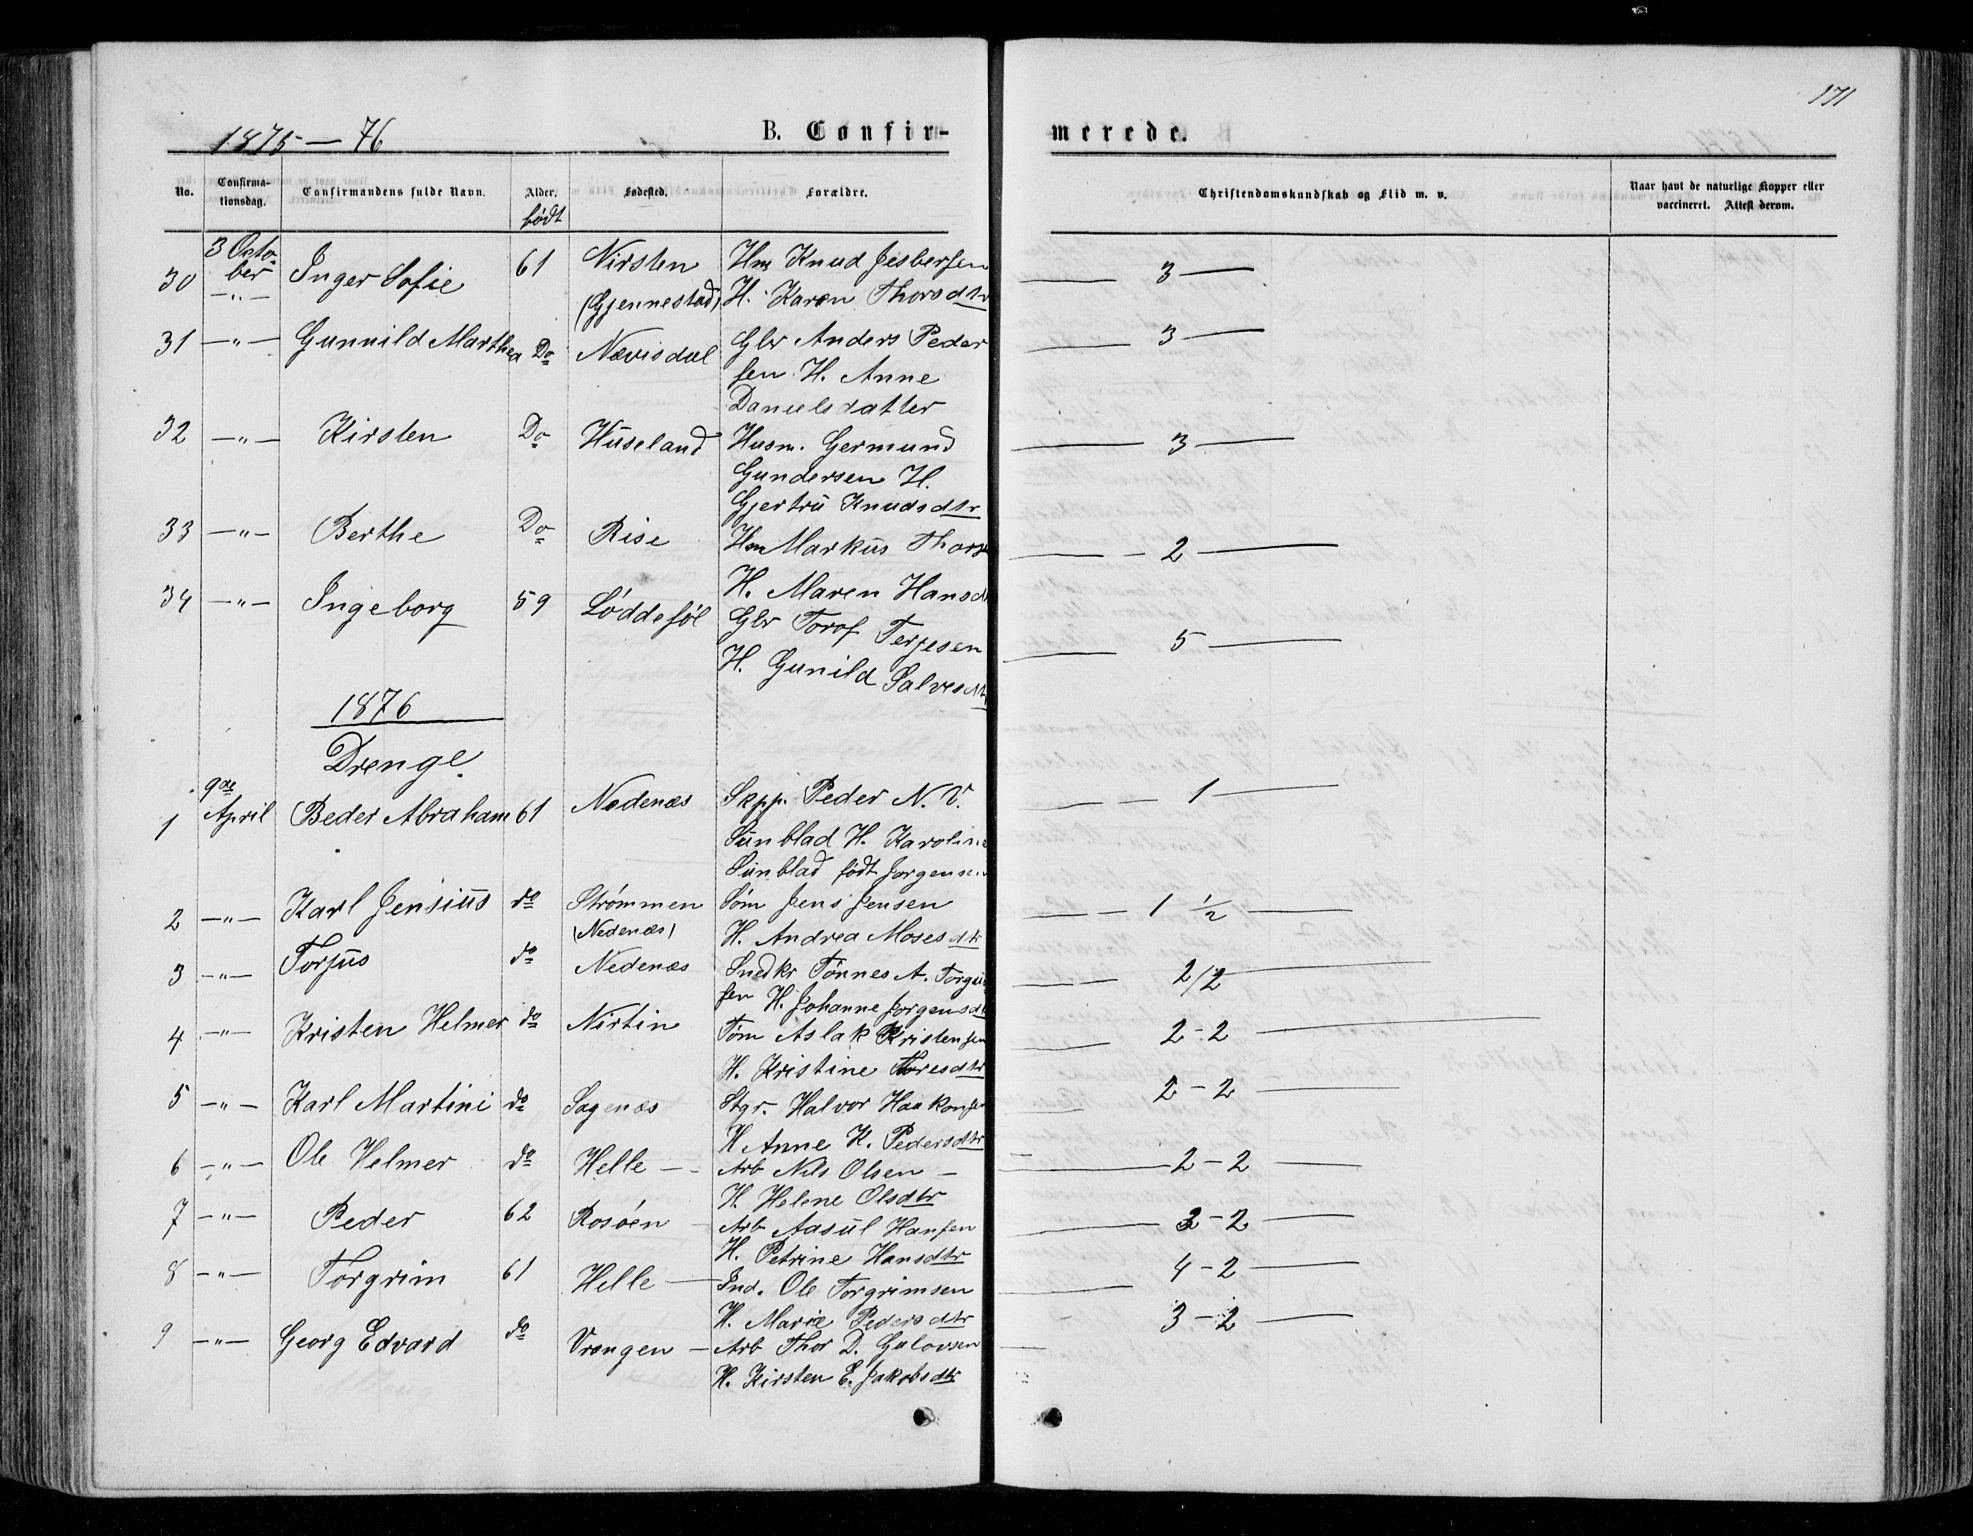 171
1875 — 76
B. Confirmerede.
No. Confirmationsdag. Confirmandens fulde Navn. Alder. født Fødested. Forældre. Christendomskundskab og Flid m. v. Naar havt de naturlige Kopper eller vaccineret. Attest derom.
30 3 October —"— Inger Sofie 61 Nirsten Hm Knud Jesbersen — 3 —
(Gjennestad) H. Karen Thorsdtr
31 —"— Gunnild Marthea Do Nævisdal Gbr Anders Peder — 3 —
sen H. Anne
Danielsdatter
32 —"— Kirsten Do Huseland Husm. Germund — 3 —
Gundersen H.
Gjertru Knudsdtr
33 —"— Berthe Do Rise Hm Markus Thors — 2 —
H. Maren Hansd
34 —"— Ingeborg 59 Løddesøl Gbr Torof Terjesen — 5 —
H. Gunild Salvesdtr
1876
Drenge
1 9de April Peder Abraham 61 Nedenæs Skpp. Peder N. V. — 1 —
Sunblad H. Karoline
Sunblad født Jorgensen
2 —"— Karl Jensius do Strømmen Søm Jens Jensen — 1 ½ —
(Nedenæs) H. Andrea Mosesdtr
3 —"— Torjus do Nedenæs Snedkr Tønnes A. Torgu — 2/2 —
sen H. Johanne Jorgensd
4 —"— Kristen Helmer do Nirtin Tøm Aslak Kristensen — 2 - 2 —
H. Kristine Toresdtr
5 —"— Karl Martini do Sagenæs Stgr. Halvor Haakonsen — 2 - 2 —
H Anne K. Pedersdtr
6 —"— Ole Helmer do Helle — Arb Nils Olsen — — 2 - 2 —
H. Helene Olsdtr
7 —"— Peder 62 Rosøen Arb Aasul Hansen — 3 - 2 —
H. Petrine Hansdtr
8 —"— Torgrim 61 Helle — Ind. Ole Torgrimsen — 4 - 2 —
H. Marie Pedersdtr
9 —"— Georg Edvard do Vrengen — Arb Thor D. Gulovsen — 3 - 2 —
H. Kirsten E. Jakobsdtr